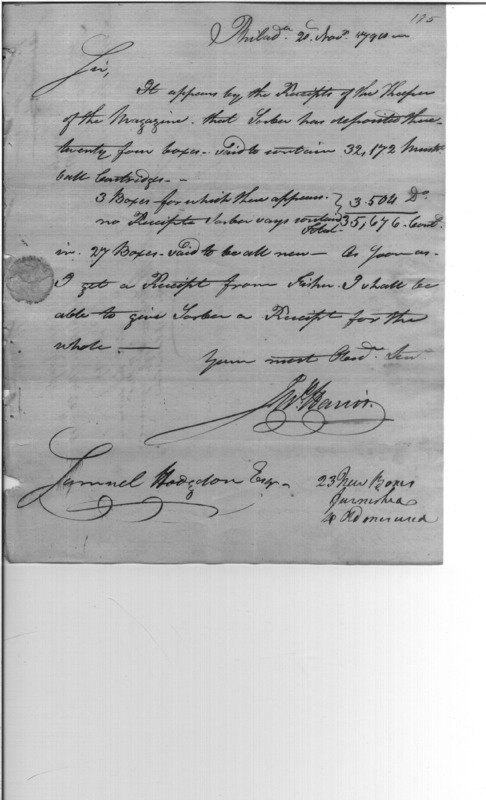 125
Philad.a 20 Nov.r
Sir,
It appears by the Receipts of the Keeper
of the Magazine that Sorber has deposited there
twenty four boxes - Said to contain 32,172 Musk.t
ball Cartridges -
3 Boxes for which there appears } 3.504 D.o
no Receipts Sorber says contain
Total 35,676 Cart.
in 27 Boxes - Said to be all new - As soon as
I get a Receipt from Fisher I shall be
able to give Sorber a Receipt for the
whole —
Your most Obed.t Serv.
Harris.
Samuel Hodgdon Esq.r
23 New Boxes
furnished
4 Old ones used